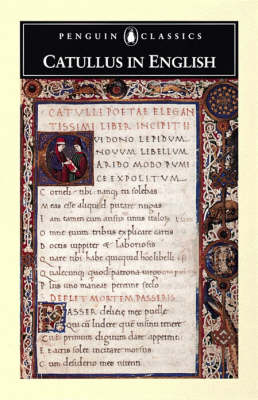 PENGUIN CLASSICS
CATULLUS IN ENGLISH
CATULLI POETAE ELEGAN
TISSIMI LIBER INCIPIT
VI DONO LEPIDUM
NOVUM LIBELLUM
ARIDO MODO PUMI
CE EXPOLITUM.
Corneli tibi: nanq tu solebas
Meas esse aliquid putare nugas
Iam tum cum ausus unus italor
Omne euum tribus explicare cartis
Doctis iuppiter et laboriosis
Quare tibi habe quicquid hoc libelli est
Qualecunq quod patrona
Plus uno maneat perenne seclo
DEFLET MORTEM PASSERIS
ASSER delicie mee puelle
Quicum ludere quem in sinu tenere
Cui primum digitum dare appetenti
Et acris solet incitare morsus
Cum desiderio meo nitenti